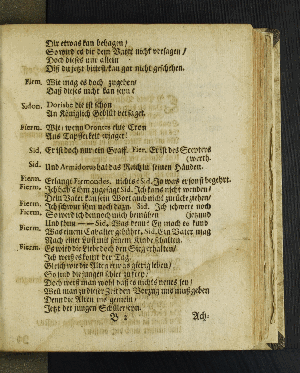 Dir etwas kan behagen/
So wird es dir dein Vater nicht versagen/
Doch dieses nur allein
Diß du jetzt bittest/kan gar nicht geschehen.
Firm. Wie mag es doch zugehen/
Daß dieses nicht kan seyn?
Sidon. Dorisbe die ist schon
An Königlich Geblüt versaget.
Fierm. Wie: wenn Orontes eine Cron
Aus Tapfferkeit waget?
Sid. Er ist doch nur ein Graff. Fier. Er ist des Scepters
(werth.
Sid. Und Armidorus hat das Reich in seinen Händen.
Fierm. Erlangt Fiermondes nichts? Sid. Ja was er sonst begehrt.
Fierm. Ich hab's ihm zugesagt Sid. Ich kans nicht wenden/
Dein Vater kan sein Wort auch nicht zurücke ziehen/
Fierm. Ich schwur ihm noch dazu. Sid. Ich schwere noch
Fierm. So werd ich dennoch mich bemühen (jetzund
Und kein — — Sid. Was
Was einem Cavalier gebühret. Sid. Ein Vater mag
Nach einer Lust mit seinem Kinde schalten.
Fierm. Es wird die Liebe doch den Sieg erhalten/
Ich weiß es kömt der Tag.
Gleich wie die Alten etwas gifftig leben/
So sind die jungen schier zu frey/
Doch weiß man wohl daß es nichts neues sey/
Weil man zu dieser Zeit den Vorzug uns muß geben
Denn die Alten ins gemein/
Jetzt der jungen Schüler seyn.
B 2 Ach: